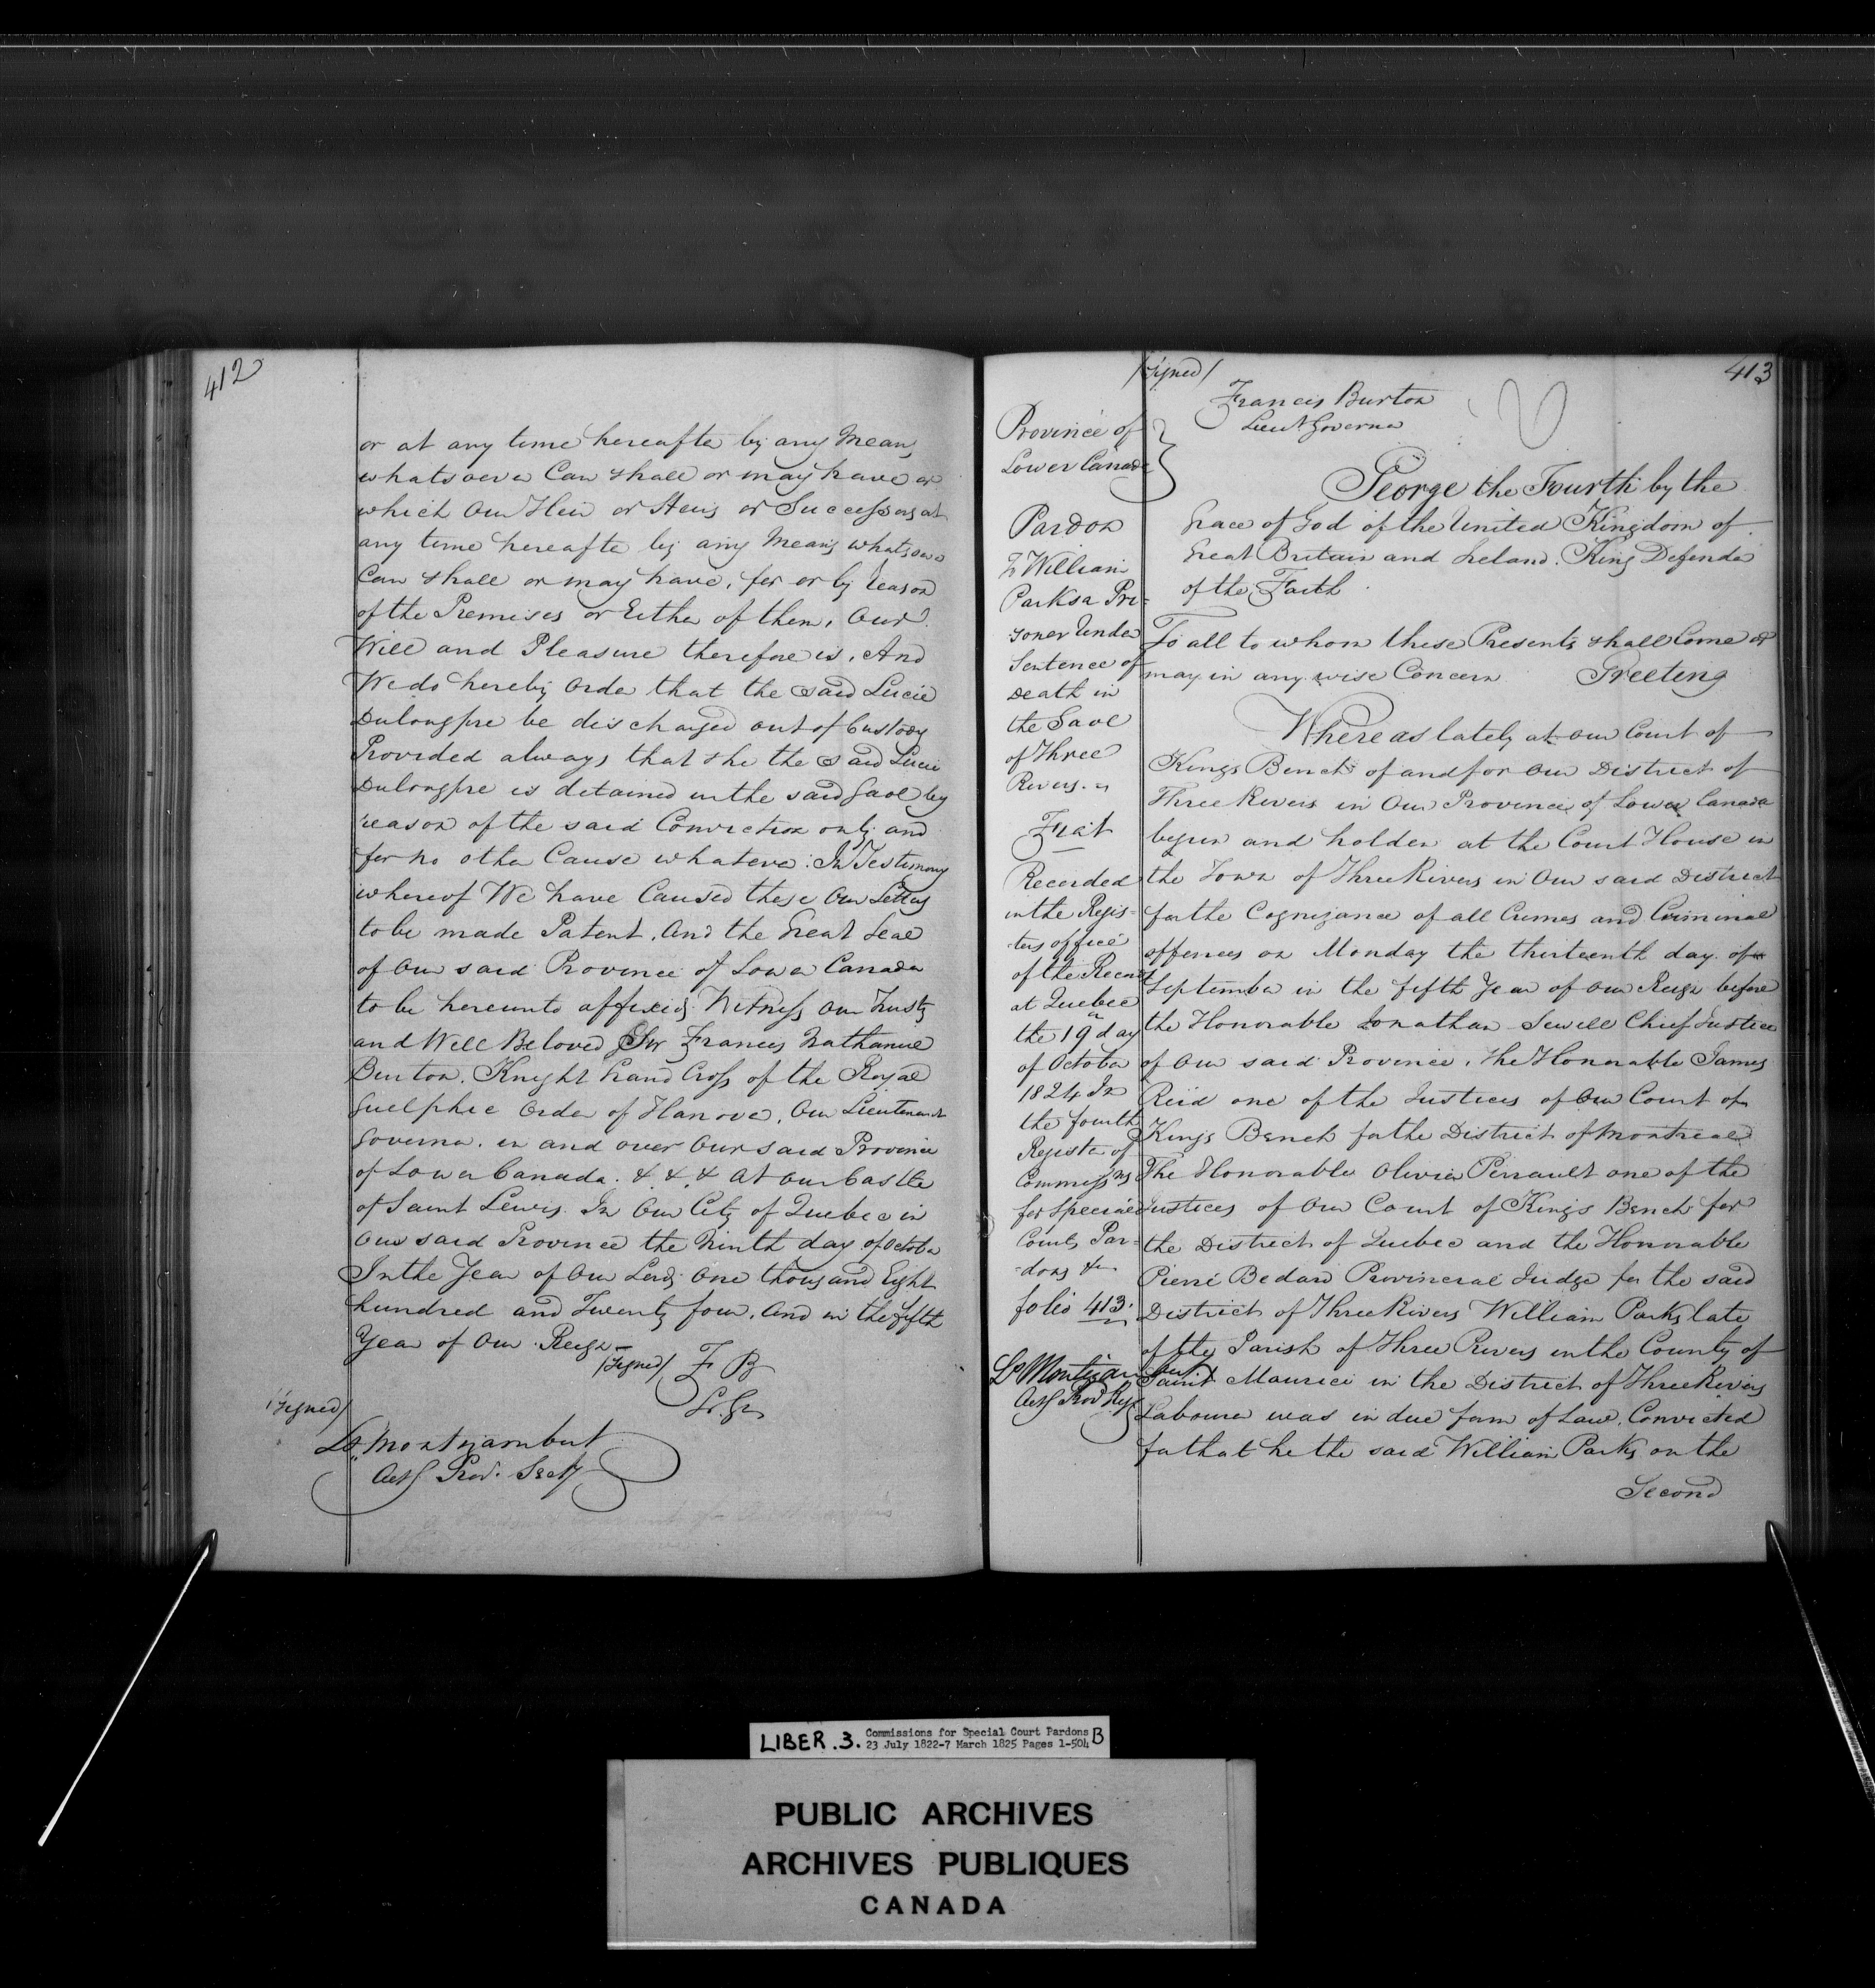 412
or at any time hereafter by any Means
whatsoever Can shall or may have or
which Our Heir or Heirs or Successors at
any time hereafter by any Means whatsoever
Can shall or may have, for or by reason
of the Premises or Either of them, Our
Will and Pleasure therefore is, And
We do hereby Order that the said Lucie
Dulongpre be discharged out of Custody
Provided always that she the said Lucie
Dulongpre is detained in the said Gaol by
reason of the said Conviction only and
for no other Cause whatever. In Testimony
whereof We have Caused these Our Letters
to be made Patent, And the Great Seal
of Our said Province of Lower Canada
to be hereunto affixed: Witness Our Trusty
and Well Beloved Sir Francis Nathaniel
Burton, Knight Grand Cross of the Royal
Guelphic Order of Hanover, Our Lieutenant
Governor in and over Our said Province
of Lower Canada. & & & At our Castle
of Saint Lewis. In Our City of Quebec in
Our said Province the Ninth day of October
In the Year of Our Lord One thousand Eight
hundred and Twenty four, And in the fifth
Year of Our Reign
/Signed/ F B
Lt. Gr.
/Signed/
Ls Montizambert
Actg Prov. Secy
413
/Signed/
Francis Burton
Lieut. Governor
Province of
Lower Canada
Pardon
To William
Parks a Pri-
soner Under
Sentence of
Death in
the Gaol
of Three
Rivers.
Fiat
Recorded
in the Regis-
ters office
of the Records
at Quebec
the 19 day
of October
1824 In
the fourth
Register of
Commissns
for Special
Courts Par-
-dons &c
folio 413.
Ls Montizambert
Actg Prov Regr
George the Fourth by the
Grace of God of the United Kingdom of
Great Britain and Ireland. King Defender
of the Faith
To all to whom these Presents shall Come or
may in any wise Concern Greeting
Whereas lately at our Court of
Kings Bench of and for Our District of
Three Rivers in Our Province of Lower Canada
begun and holden at the Court House in
the Town of Three Rivers in Our said District
for the Cognizance of all Crimes and Criminal
offences on Monday the thirteenth day of
September in the fifth Year of Our Reign before
the Honorable Jonathan Sewell Chief Justice
of Our said Province, the Honorable James
Reid one of the Justices of Our Court of
Kings Bench for the District of Montreal
The Honorable Olivier Perrault one of the
Justices of Our Court of Kings Bench for
the District of Quebec and the Honorable
Pierre Bedard Provincial Judge for the said
District of Three Rivers William Parks late
of the Parish of Three Rivers in the County of
Saint Maurice in the District of Three Rivers
Labourer was in due form of Law, Convicted
for that he the said William Parks on the
Second
LIBER.3. Commissions for Special Court Pardons B
23 July 1822-7 March 1825 Pages 1-504
PUBLIC ARCHIVES
ARCHIVES PUBLIQUES
CANADA